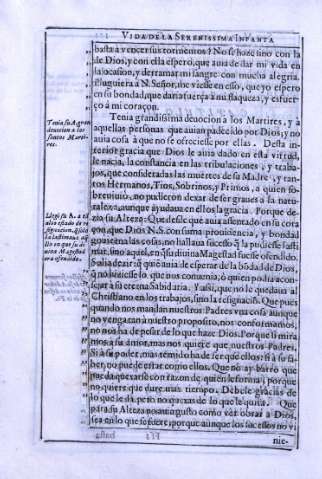 VIDA DE LA SERENISSIMA INFANTA
basta a vencer sus tormentos? No se haze sino con la
de Dios, y con ella espero, que auia de dar mi vida en
la ocasion, y derramar mi sangre con mucha alegria.
Pluguiera a N. Señor, me viesse en esso, que yo espero
en su bondad, que daria fuerça a mi flaqueza, y esfuer-
ço a mi coraçon.
Tenia su A. gran
deuocion a los
santos Marti-
res.
Tenia grandissima deuocion a los Martires, y à
aquellas personas que auian padecido por Dios; y no
auia cosa à que no se ofreciesse por ellas. Desta in-
terior gracia que Dios le auia dado en esta virtud,
le nacia, la constancia en las tribulaciones, y traba-
jos, que consideradas las muertes de su Madre, y tan-
tos Hermanos, Tios, Sobrinos, y Primos, a quien so-
breuiuiò, no pudieron dexar de ser graues a la natu-
raleza, aunque ayudaua en ellos la gracia. Porque de-
zia su Alteza: Que desde que auia assentado en su cora-
çon, que Dios N.S. con suma prouidencia, y bondad
Llegò su A. a tã
alto estado de re-
signacion, q̃ solo
la lastimaua a-
llo en que su di-
uina Magestad
era ofendida.
gouierna las cosas, no hallaua sucesso q̃ la pudiesse lasti-
mar, sino aquel, en q̃ su diuina Magestad fuesse ofendido.
Solia dezir q̃ que auia de esperar de la bõdad de Dios,
q̃ no hiziesse lo que nos conuenia; ò quien podia acon-
sejar a su eterna Sabiduria. Y assi, que no le quedaua al
Christiano en los trabajos, sino la resignaciõ. Que pues
quando nos mandan nuestros Padres vna cosa aunque
no venga tan à nuestro proposito, nos conformamos,
no nos ha de pesar de lo que haze Dios. Porque si mira
mos a su amor, mas nos quiere que nuestros Padres.
Si à su poder, mas temido ha de ser que ellos: si a su sa-
ber, no puede estar como ellos. Que no ay barro que
pueda quexarse con razon de quien le forma; porque
no quiere que dure mas tiempo. Debele gracias de
lo que le da, pero no quexas de lo que le quita. Que
para su Alteza no auia gusto como ver obrar a Dios,
sea en lo que se fuere; porque aunque los sucessos no vi
nie-